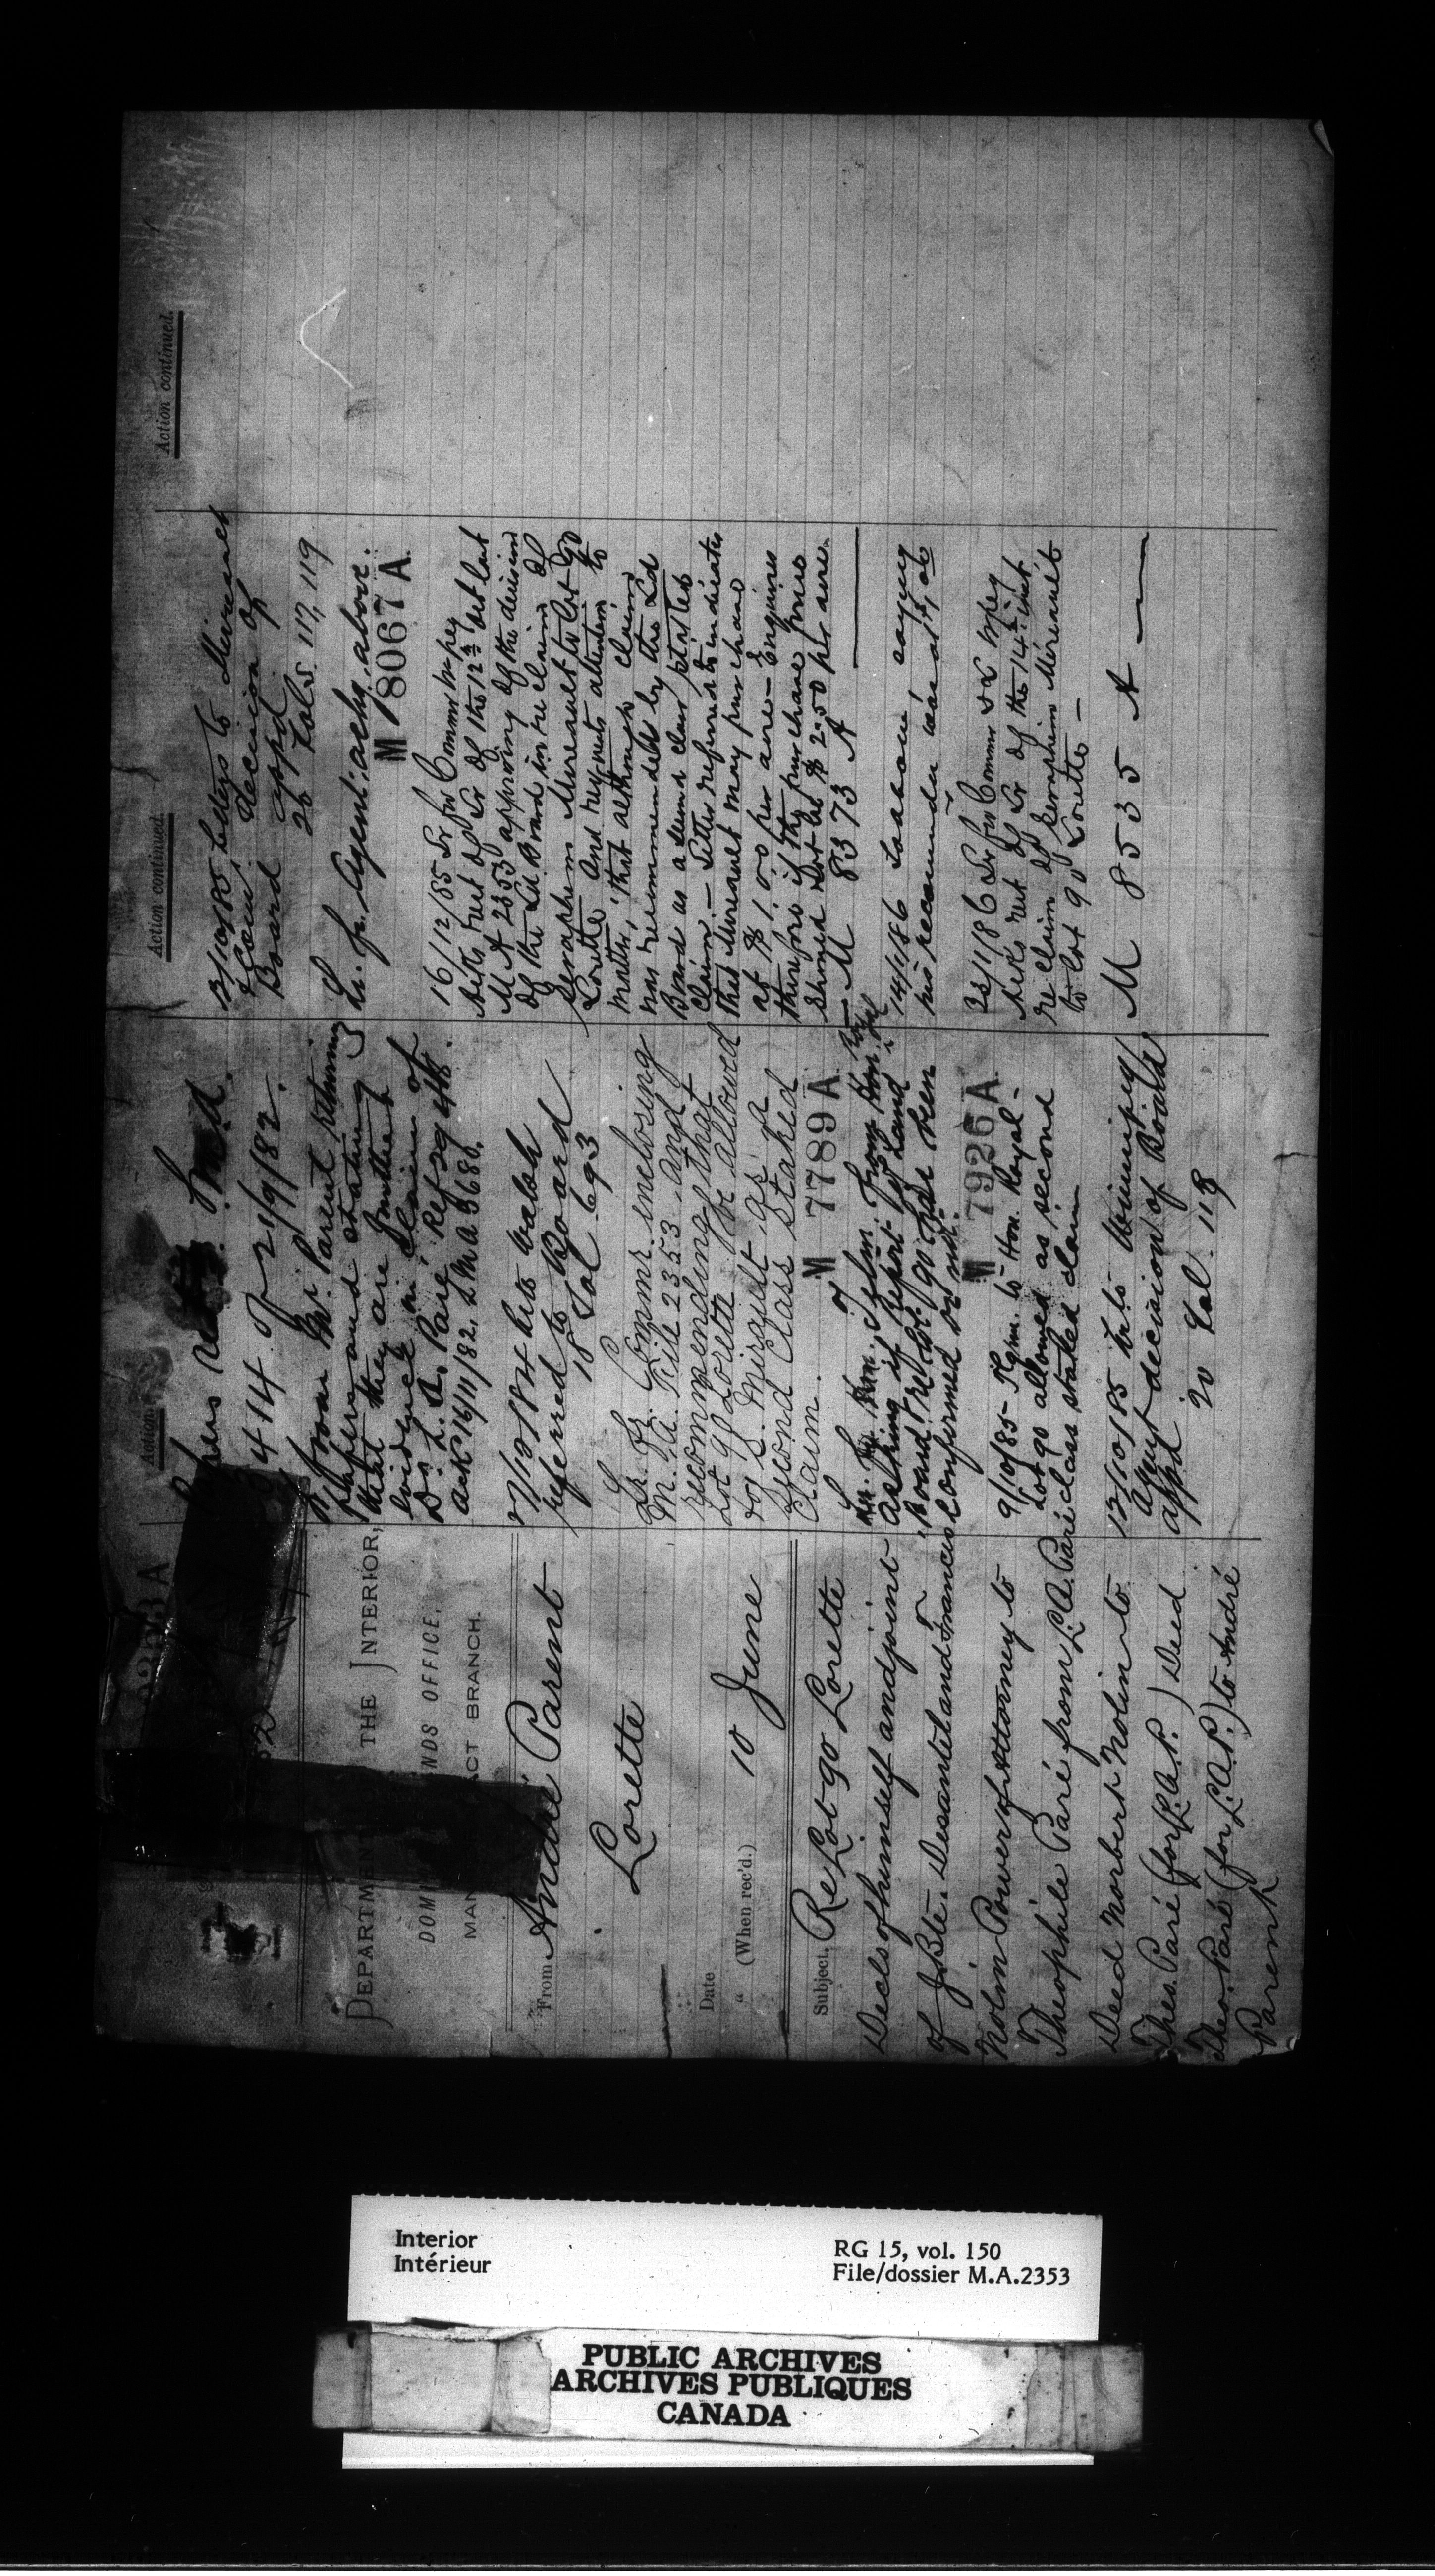 DEPARTMENT THE INTERIOR,
LANDS OFFICE,
ACT BRANCH.
From André Parent
Lorette
Date
" (When rec'd.) 10 June
Subject, Re Lot 90 Lorette
Decls of himself and joint
of J. Bte. Desautel and Francis
Nolin Power of Attorney to
Theophile Paré from L.A. Paré
Deed Norbert Nolin to
Theo. Paré (for L.A.P.) Deed
Theo. Paré (for L.A.P.) to André
Parent
Action.
414 of 21/9/82.
from Mr. Parent returning
papers and stating
that they are
evidence in claim of
D. L. A. Paré Ref 329448.
ack 16/11/82. M A 3680.
27/12/84 hits Walsh
referred to Board
18 Fol 693
Lr. fr. Commr. inclosing
M. A. File 2353 and
recommending that
Lot 90 Lorette be allowed
to S. Mirault as a
Second Class Staked
Claim.
M 7789 A
asking if report of Land
Board re lot 90 had been
confirmed or not.
M 7926 A
9/10/85 Tgm. to Hon. Royal -
Lot 90 allowed as second
class staked claim
12/10/85 hrs to Winnipeg
Agent decision of Board
appd 20 Fol. 118
Action continued.
13/10/85 Ltrs to Mireault
& Com. decision of
Board appd.
20 Fols. 117, 119
Lr. fr. Agent. ackg. above.
M 8067 A
16/12/85 Lr fr Commr Wpeg
Acks rect of Lr of the 12th Oct last
M A 2353 approving of the decision
of the Ld Board in re claim of
Seraphin Mireault to Lot 90
Lorette and requests attention to
matter, that although claim
was recommended by the Ld
Board as a second class staked
claim - Letter referred to indicates
that Mireault may purchase
at $1.00 per acre - Enquires
therefore if the purchase price
should not be $2.50 per acre.
M 8373 A
14/1/86
23/1/86 Lr fr Commr D L Wpeg
Acks rect of Lr of the 14th inst
re claim of Seraphin Mireault
to Lot 90 Lorette -
M 8535 A
Action continued.
Interior
Intérieur
RG 15, vol. 150
File/dossier M.A.2353
PUBLIC ARCHIVES
ARCHIVES PUBLIQUES
CANADA